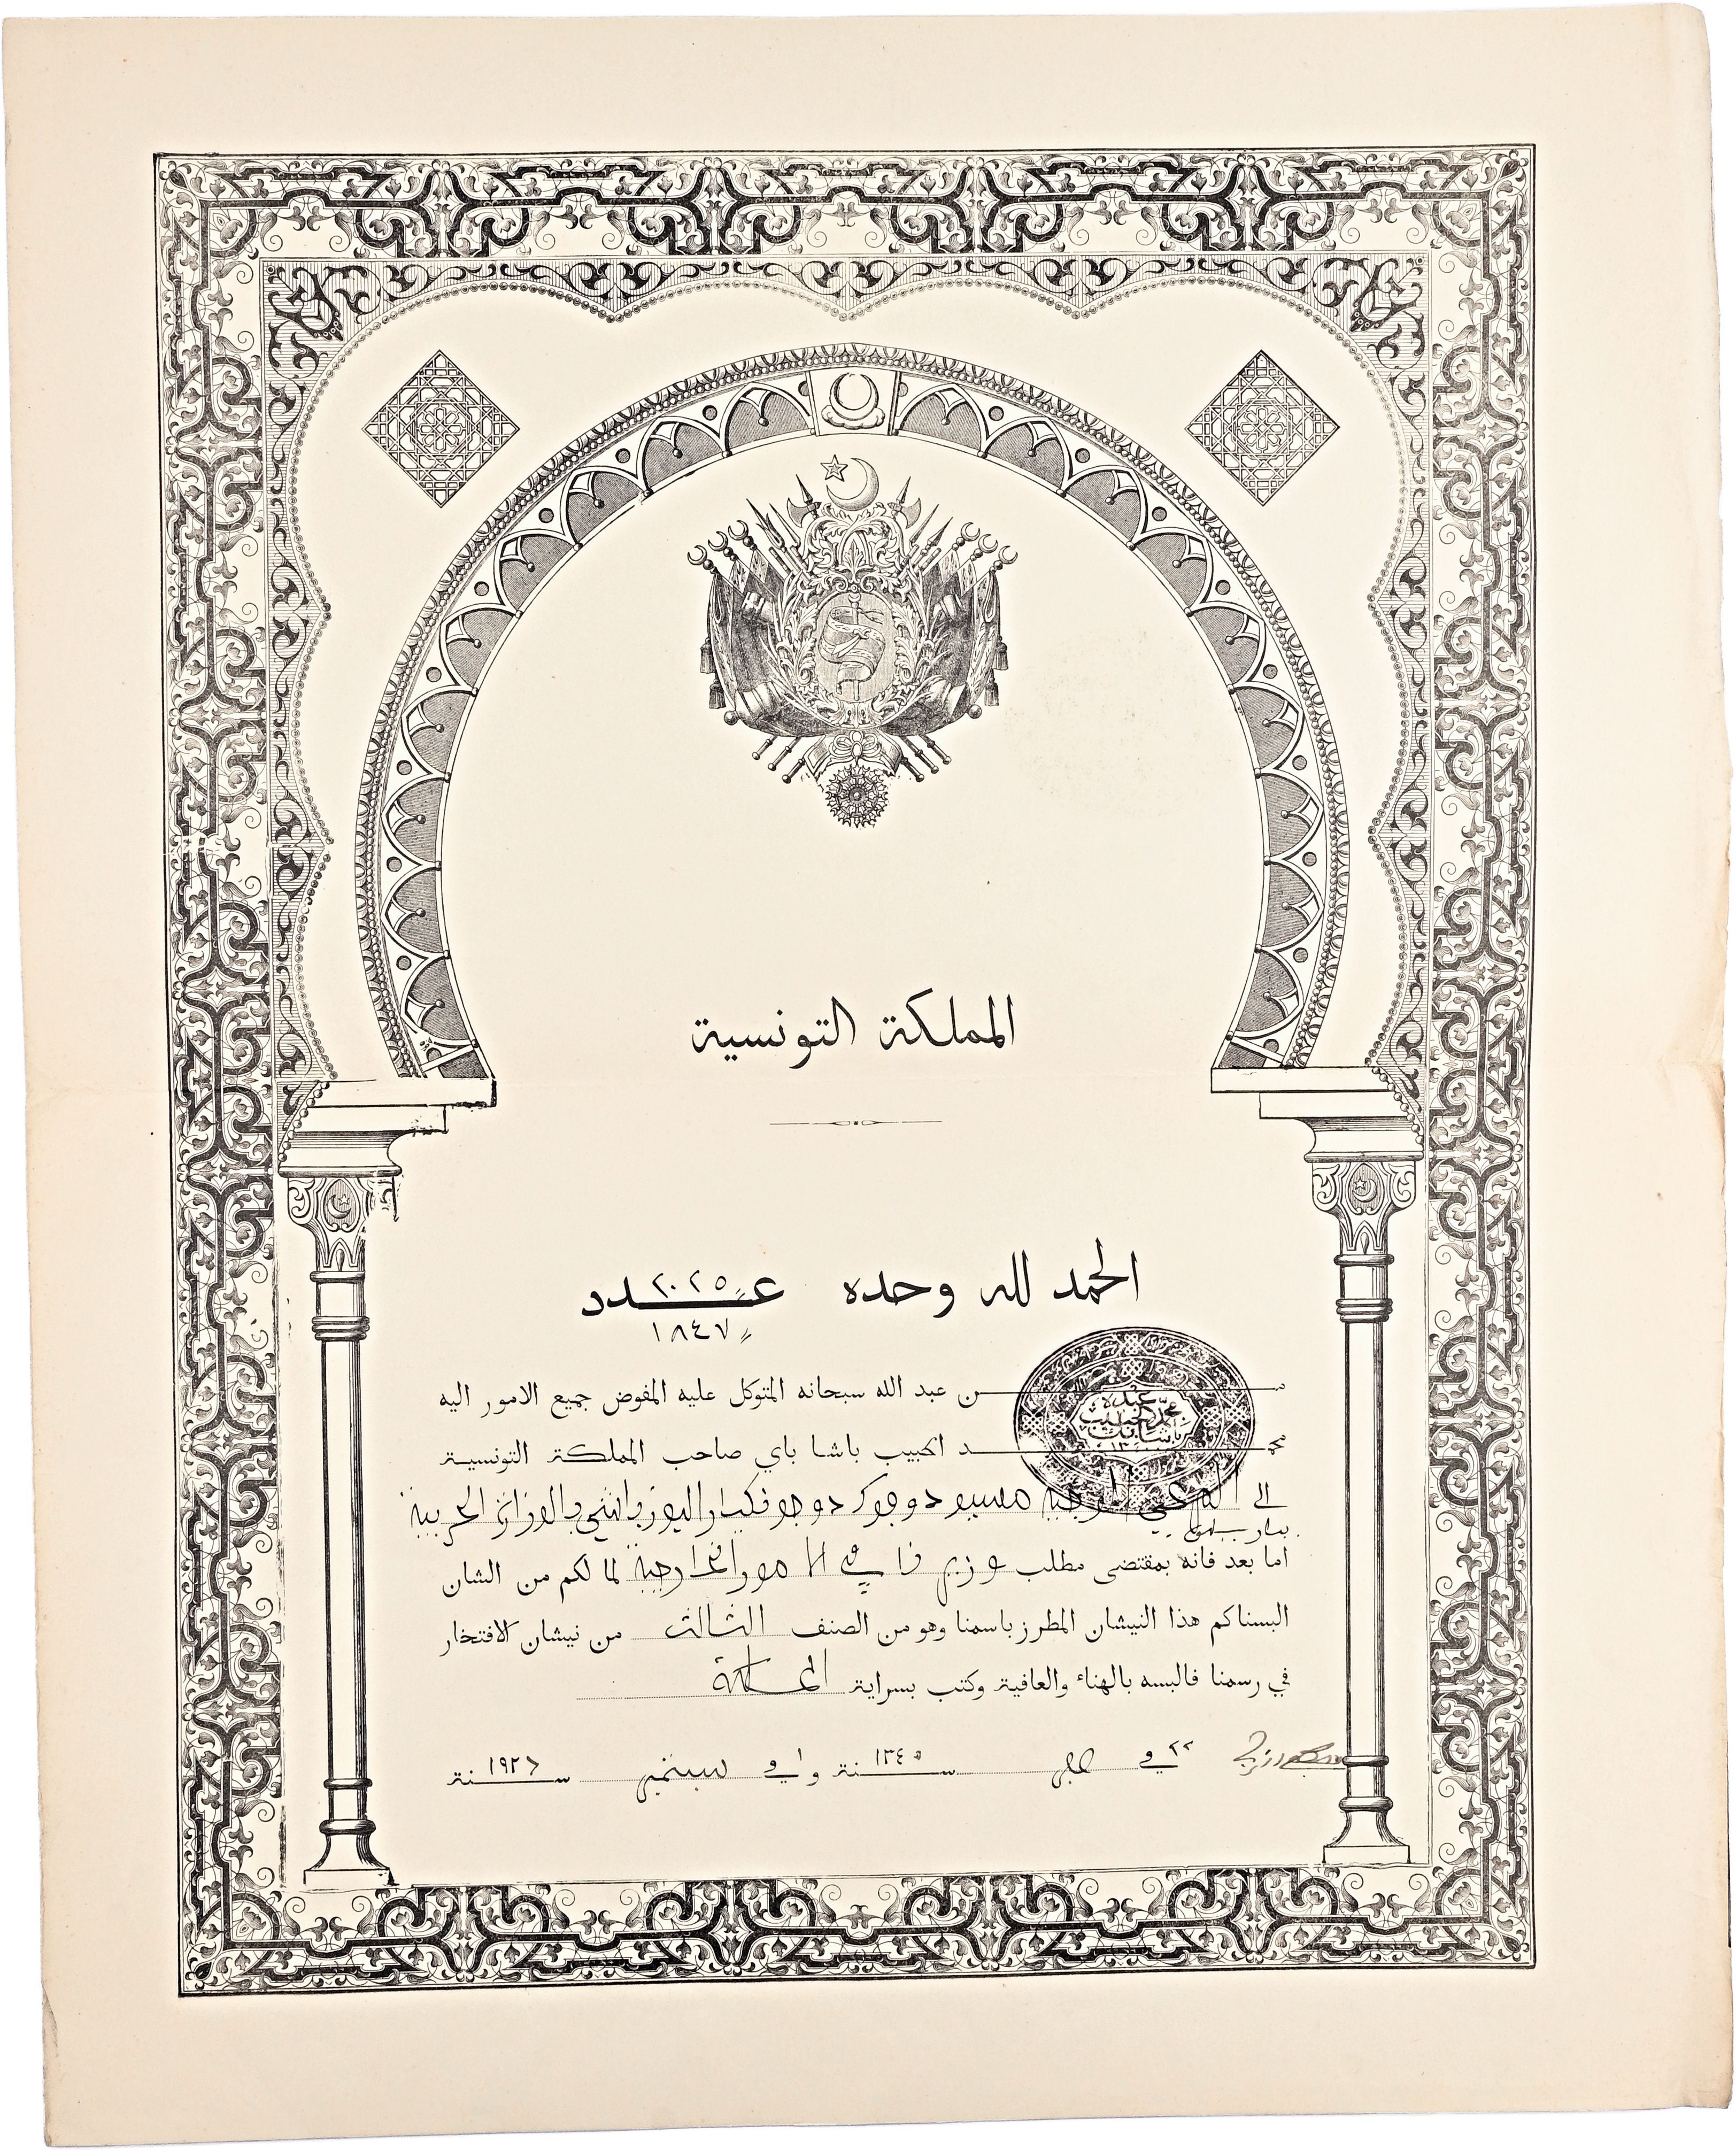 المملكة التونسية
الحمد لله وحده عدد ٢٠٢٥
١٨٤٧
من عبد الله سبحانه المتوكل عليه المفوض جميع الامور اليه
عبده محمد الحبيب باشا باي
محمد الحبيب باشا باي صاحب المملكة التونسية
الى مسيو دوجوك دوجونكيار اليوزباشي بالوزارة الحربية
اما بعد فانه بمقتضى مطلب وزيرنا في الامور الخارجية لما لكم من الشان
البسناكم هذا النيشان المطرز باسمنا وهو من الصنف الثالث من نيشان الافتخار
في رسمنا فالبسه بالهناء والعافية وكتب بسراية المملكة
٢٢ في سنة ١٣٤٥ و ١ في سبتمبر سنة ١٩٢٦